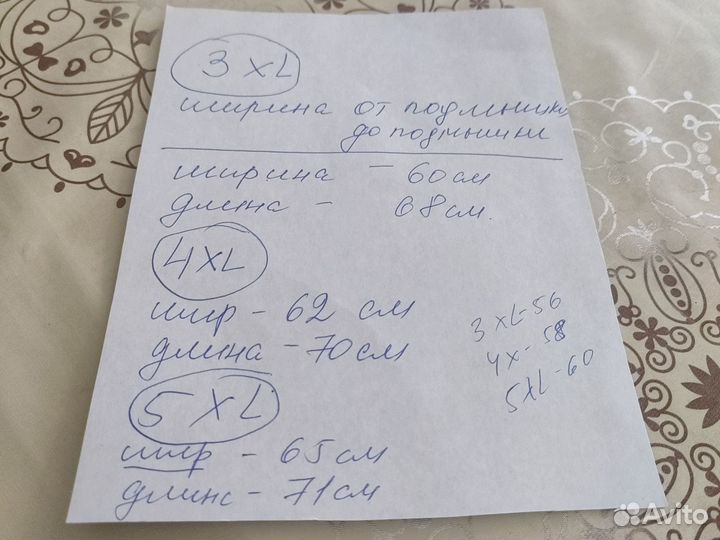 3 XL
ширина от подмышки
до подмышки
ширина – 60 см
длина – 68 см.
4 XL
шир – 62 см
длина – 70 см
3 XL-56
4X-58
5XL-60
5 XL
шир – 65 см
длинс – 71 см
Avito